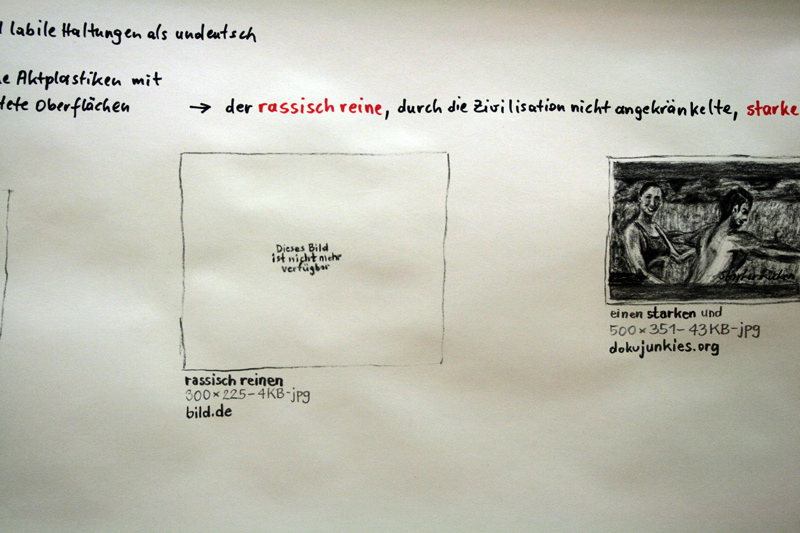 labile Haltungen als undeutsch
Aktplastiken mit
Oberflächen → der rassisch reine, durch die Zivilisation nicht angekränkelte, starke
Dieses Bild
ist nicht mehr
verfügbar
rassisch reinen
300×225–4KB–jpg
bild.de
einen starken und
500×351–43KB–jpg
dokujunkies.org